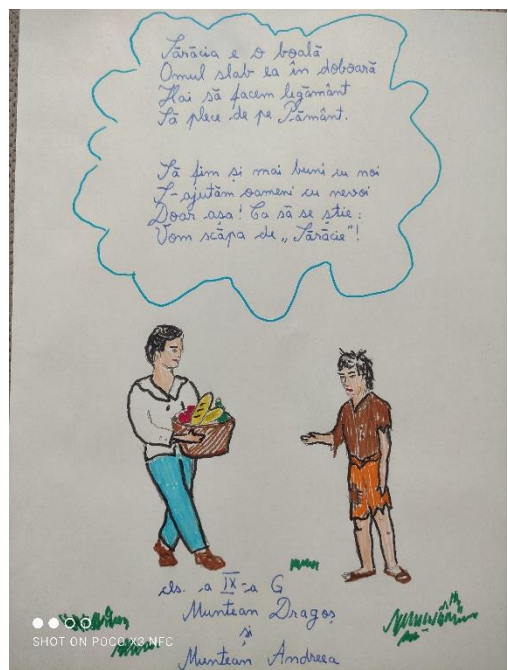 Sărăcia e o boală
Omul slab ea în doboară
Hai să facem legământ
Să plece de pe Pământ.
Să fim și mai buni cu noi
S-ajutăm oameni cu nevoi
Doar așa! Ca să se știe:
Vom scăpa de „Sărăcie"!
cls. a IX-a G
Muntean Dragoș
și
Muntean Andreea
SHOT ON POCO X3 NFC